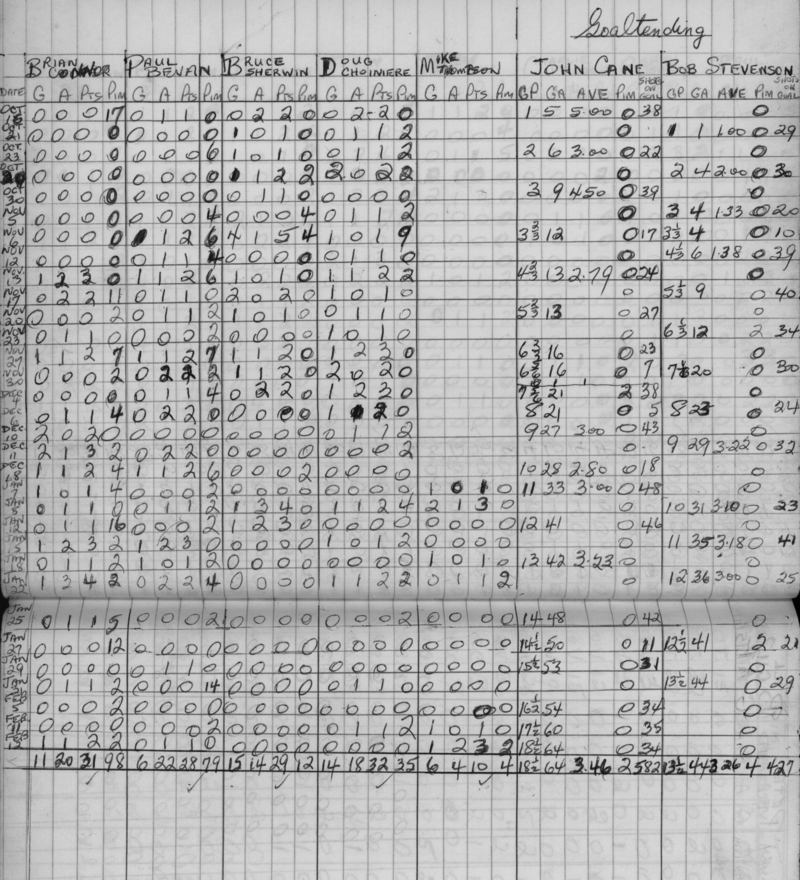 Goaltending
BRIAN CONNOR PAUL BEVAN BRUCE SHERWIN DOUG CHOINIERE MIKE THOMPSON JOHN CANE BOB STEVENSON
DATE G A Pts Pim G A Pts Pim G A Pts Pim G A Pts Pim G A Pts Pim GP GA AVE Pim SHOTS ON GOAL GP GA AVE Pim SHOTS ON GOAL
0 0 0 17 0 1 1 0 0 2 2 0 0 2 2 0 1 5 5.00 0 38 0
OCT 21 0 0 0 0 0 0 0 0 1 0 1 0 0 1 1 2 0 1 1 1.00 0 29
OCT 23 0 0 0 0 0 0 0 6 1 0 1 0 0 1 1 2 2 6 3.00 0 22 0
0 0 0 0 0 0 0 0 1 1 2 2 2 0 2 2 2 4 2.00 0 30
OCT 30 0 0 0 0 0 0 0 0 0 1 1 0 0 0 0 0 2 9 4.50 0 39 0
NOV 5 0 0 0 0 0 0 0 4 0 0 0 4 0 1 1 2 0 3 4 1.33 0 20
NOV 0 0 0 0 1 1 2 6 4 1 5 4 1 0 1 9 3 2/3 12 0 17 3 1/3 4 0 10
NOV 12 0 0 0 0 0 1 1 4 0 0 0 0 0 1 1 0 0 4 1/3 6 1.38 0 39
NOV 13 1 2 3 0 1 1 2 6 1 0 1 0 1 1 2 2 4 2/3 13 2.79 0 24 0
NOV 19 0 2 2 11 0 1 1 0 2 0 2 0 1 0 1 0 0 5 1/3 9 0 40
NOV 20 0 0 0 2 0 1 1 2 1 0 1 0 0 1 1 0 5 2/3 13 0 27 0
NOV 23 0 1 1 0 0 0 0 2 0 0 0 0 1 0 1 0 0 6 1/3 12 2 34
NOV 27 1 1 2 7 1 1 2 7 1 1 2 0 1 2 3 0 6 2/3 16 0 23 0
NOV 30 0 0 0 2 0 2 2 2 1 1 2 0 2 0 2 0 16 0 7 20 0 30
DEC 0 0 0 2 0 1 1 4 0 2 2 0 1 2 3 0 21 2 38 0
DEC 0 1 1 4 0 2 2 0 0 0 0 0 1 2 0 8 21 0 5 8 23 0 24
DEC 10 2 0 2 0 0 0 0 0 0 0 0 0 0 1 1 2 9 27 3.00 0 43 0
DEC 11 2 1 3 2 0 2 2 0 0 0 0 0 0 0 0 2 0 9 29 3.22 0 32
DEC 18 1 1 2 4 1 1 2 6 0 0 0 2 0 0 0 0 10 28 2.80 0 18 0
JAN 1 0 1 4 0 0 0 2 0 0 0 0 0 0 0 0 1 0 1 0 11 33 3.00 0 48 0
JAN 0 1 1 0 0 1 1 2 1 3 4 0 1 1 2 4 2 1 3 0 0 10 31 3.10 0 23
JAN 12 0 1 1 16 0 0 0 2 1 2 3 0 0 0 0 0 0 0 0 0 12 41 0 46 0
JAN 1 2 3 2 1 2 3 0 0 0 0 0 1 0 1 2 0 0 0 0 0 11 35 3.18 0 41
JAN 0 1 1 2 1 0 1 2 0 0 0 0 0 0 0 0 1 0 1 0 13 42 3.23 0 0
JAN 22 1 3 4 2 0 2 2 4 0 0 0 0 1 1 2 2 0 1 1 2 0 12 36 3.00 0 25
JAN 25 0 1 1 5 0 0 0 2 0 0 0 0 0 0 0 2 0 0 0 0 14 48 0 42 0
JAN 27 0 0 0 12 0 0 0 0 0 0 0 0 0 0 0 0 0 0 0 0 14 1/2 50 0 11 12 1/2 41 2 21
JAN 29 0 0 0 0 0 1 1 0 0 0 0 0 0 0 0 0 0 0 0 0 15 1/2 53 0 31 0
JAN 0 1 1 2 0 0 0 14 0 0 0 0 0 1 1 0 0 0 0 0 0 13 1/2 44 0 29
FEB 5 0 0 0 2 0 0 0 0 0 0 0 0 0 0 0 0 0 0 0 0 16 1/2 54 0 34 0
FEB 11 0 0 0 0 0 0 0 2 0 0 0 0 0 1 1 2 1 0 1 0 17 1/2 60 0 35 0
FEB 12 1 1 2 2 0 1 1 0 0 0 0 0 0 0 0 0 1 2 3 2 18 1/2 64 0 34 0
11 20 31 98 6 22 28 79 15 14 29 12 14 18 32 35 6 4 10 4 18 1/2 64 3.46 2 582 13 1/2 44 3.26 4 427